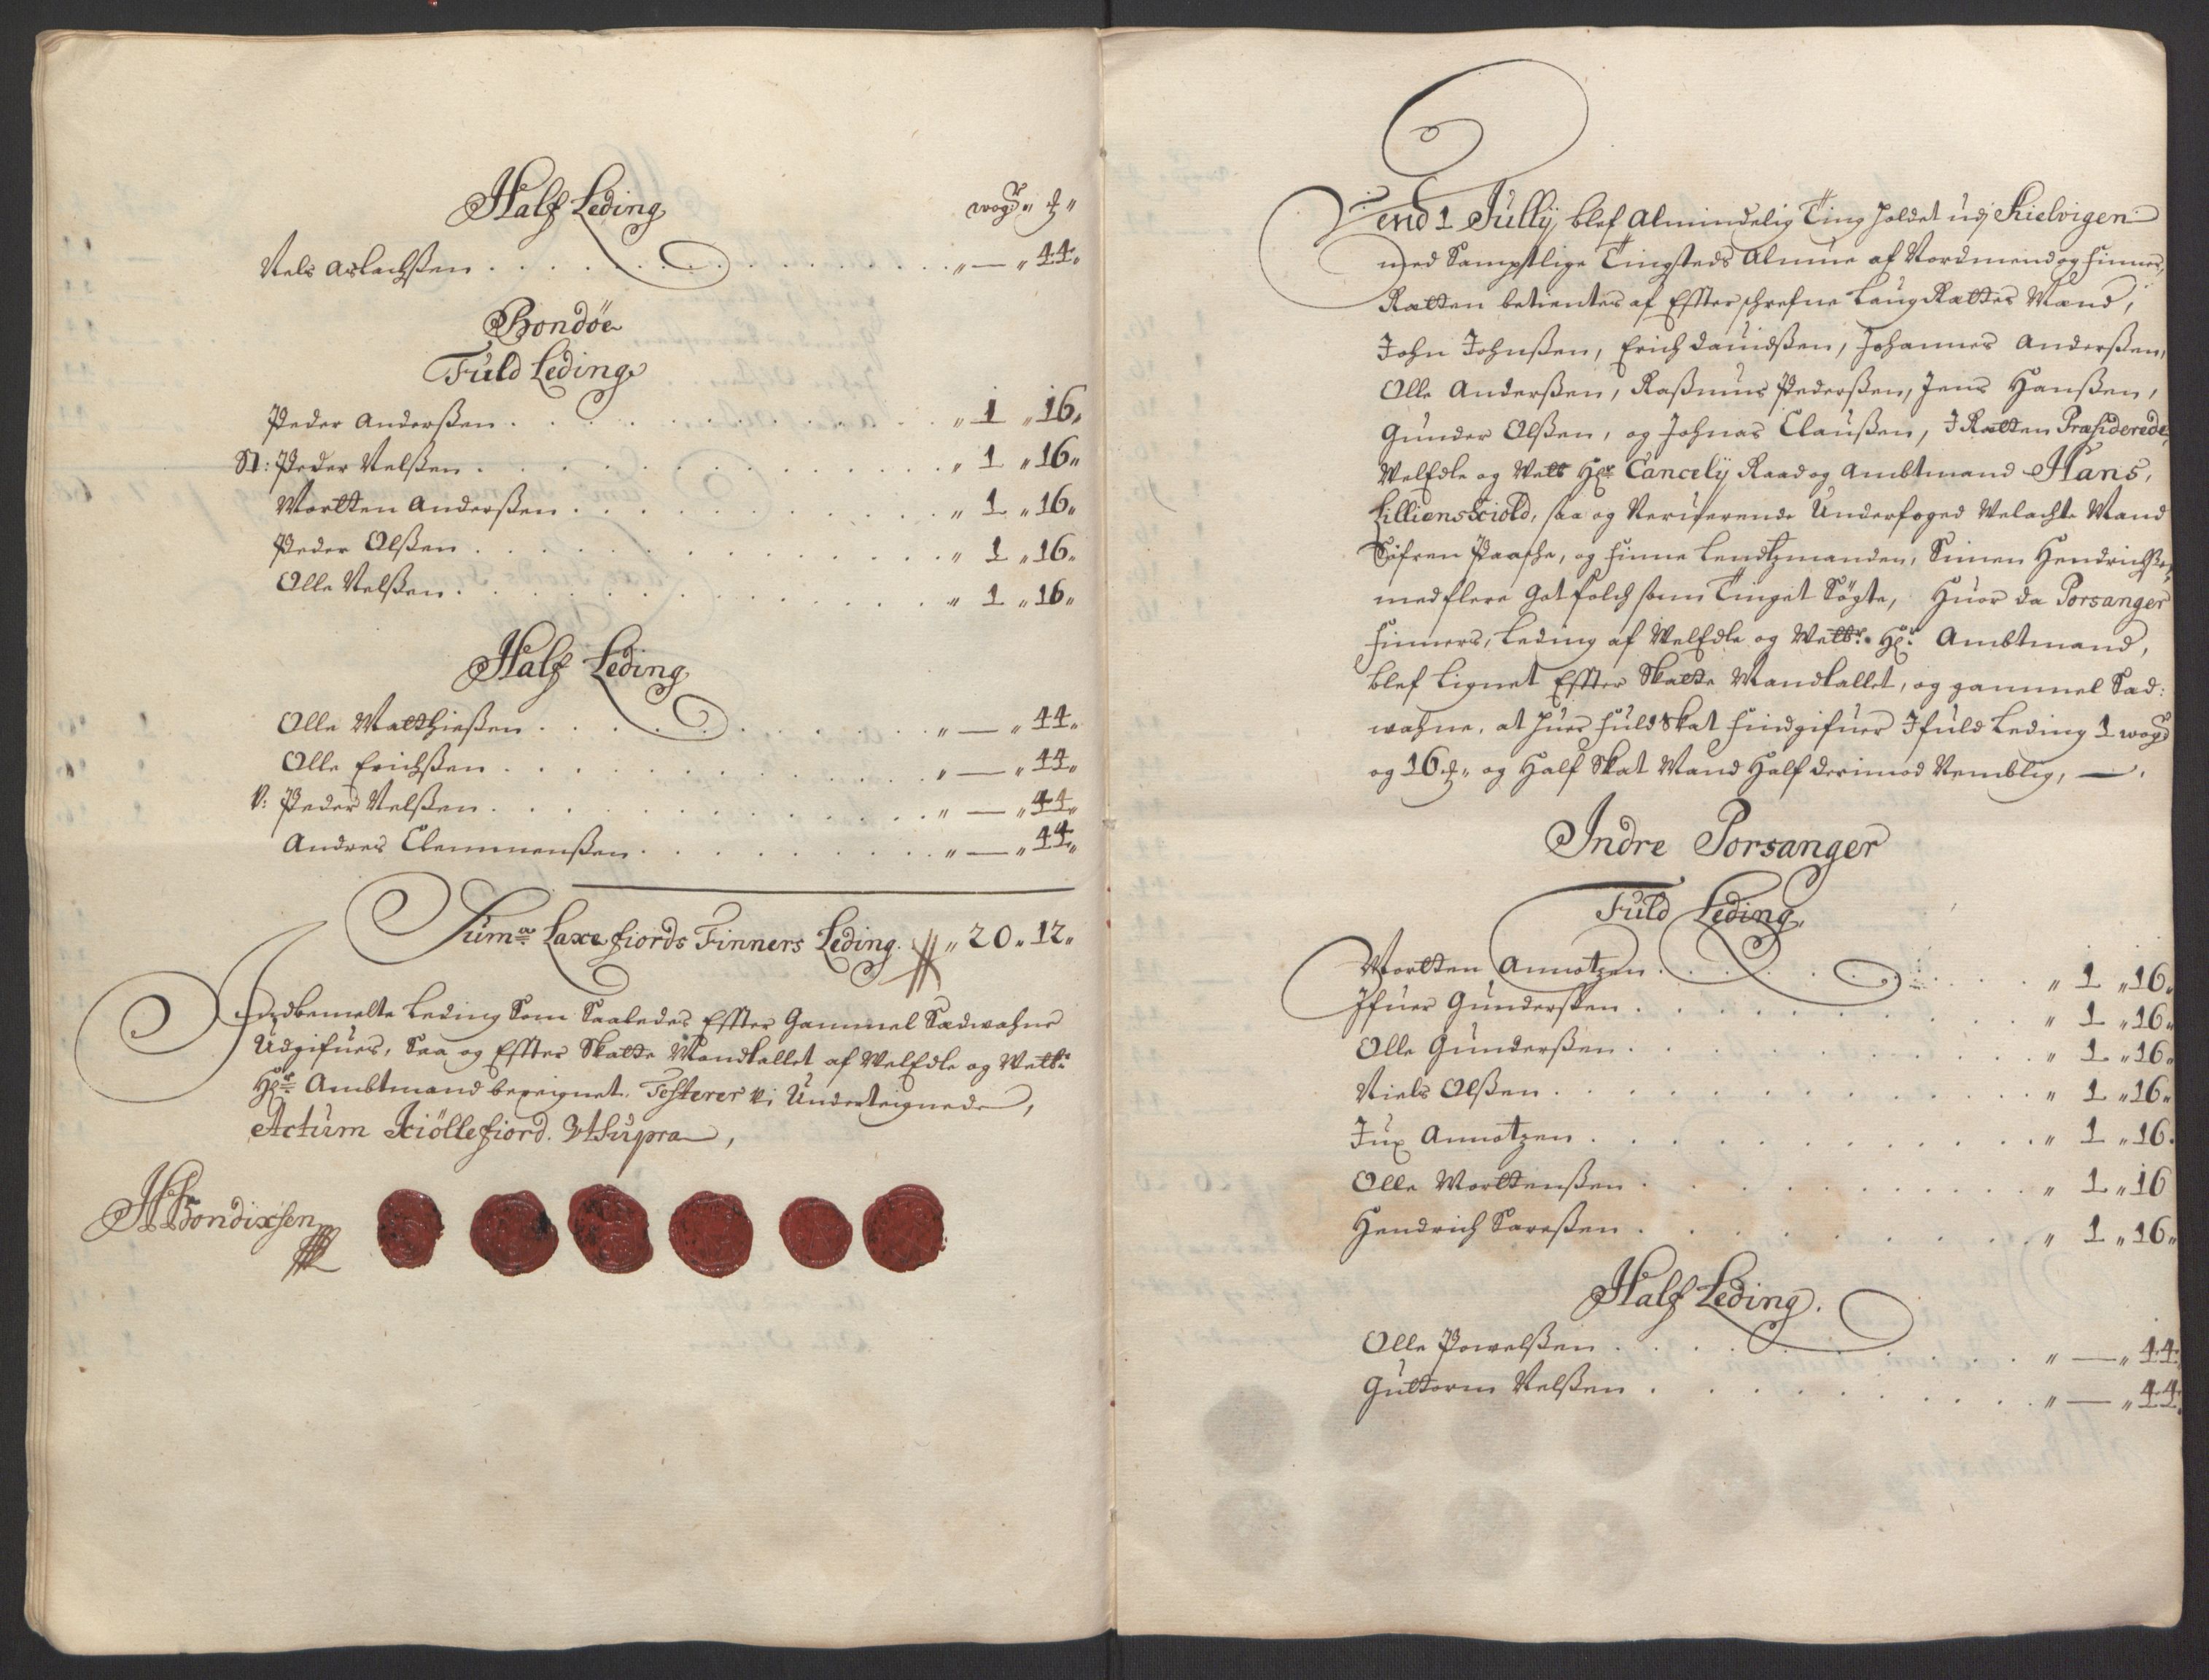 Half Leding wogr „ ₰ „
Nels Aslachsßen . . . . „ — „ 44 „
Bondöe
Fuld Leding
Peder Anderßen . . . . „ 1 „ 16 „
St: Peder Nelßen . . . . „ 1 „ 16 „
Mortten Anderßen . . . . „ 1 „ 16 „
Peder Olßen . . . . „ 1 „ 16 „
Olle Nelßen . . . . „ 1 „ 16 „
Half Leding
Olle Matthießen . . . . „ — „ 44 „
Olle Erichßen . . . . „ — „ 44 „
V: Peder Nelßen . . . . „ — „ 44 „
Andres Clemmenßen . . . . „ — „ 44 „
Suma Laxefiords Finners Leding. „ 20 „ 12 „
Indbemelte Leding Som Saaledes Effter Gammel Sædwahne
Udgifues, Saa og Effter Skatte Mandtallet af WelEdle og Welb:
Hr Ambtmand beregnet. Testerer vi Underteignede,
Actum Kiöllefiord. Ut Supra,
HHBondixsen
Dend 1 Jullij, blef Almindelig Ting holdet udj Kielvigen
med Samptlige Tingsteds Almue af Nordmend og Finner,
Rætten betientes af Effterschrefne LaugRættes Mænd,
John Johnßen, Erich Dauidßen, Johannes Anderßen,
Olle Anderßen, Raßmus Pederßen, Jens Hanßen,
Gunder Olßen, og Johnas Claußen, I Rætten Præsiderede,
WelEdle og Welb Hr Cancelij Raad og Ambtmand Hans
Lilliensckiold, saa og Nerværende Underfoged Welachte Mand
Söfren Paasche, og Finne Lendtzmanden, Simen Hendrichße,
med flere Got folch som Tinget Sögte, Huor da Porsanger
Finners, Leding af WelEdle og Welb. Hr Ambtmand,
blef Lignet Effter Skatte Mandtallet, og gammel Sæd:
wahne, at huer fuld Skat Find gifuer I fuld Leding 1 wogr
og 16 ₰ „ og Half Skat Mand Half derimod Nemblig, — .
Indre Porsanger
Fuld Leding,
Mortten Amnotzen . . . . „ 1 „ 16 „
Ifuer Gunderßen . . . . „ 1 „ 16 „
Olle Gunderßen . . . . „ 1 „ 16 „
Niels Olßen . . . . „ 1 „ 16 „
Jux Amnotzen . . . . „ 1 „ 16 .
Olle Morttenßen . . . . „ 1 „ 16
Hendrich Sareßen . . . . „ 1 „ 16 „
Half Leding.
Olle Powelßen . . . . „ — „ 44
Guttorm Nelßen . . . . „ — „ 44